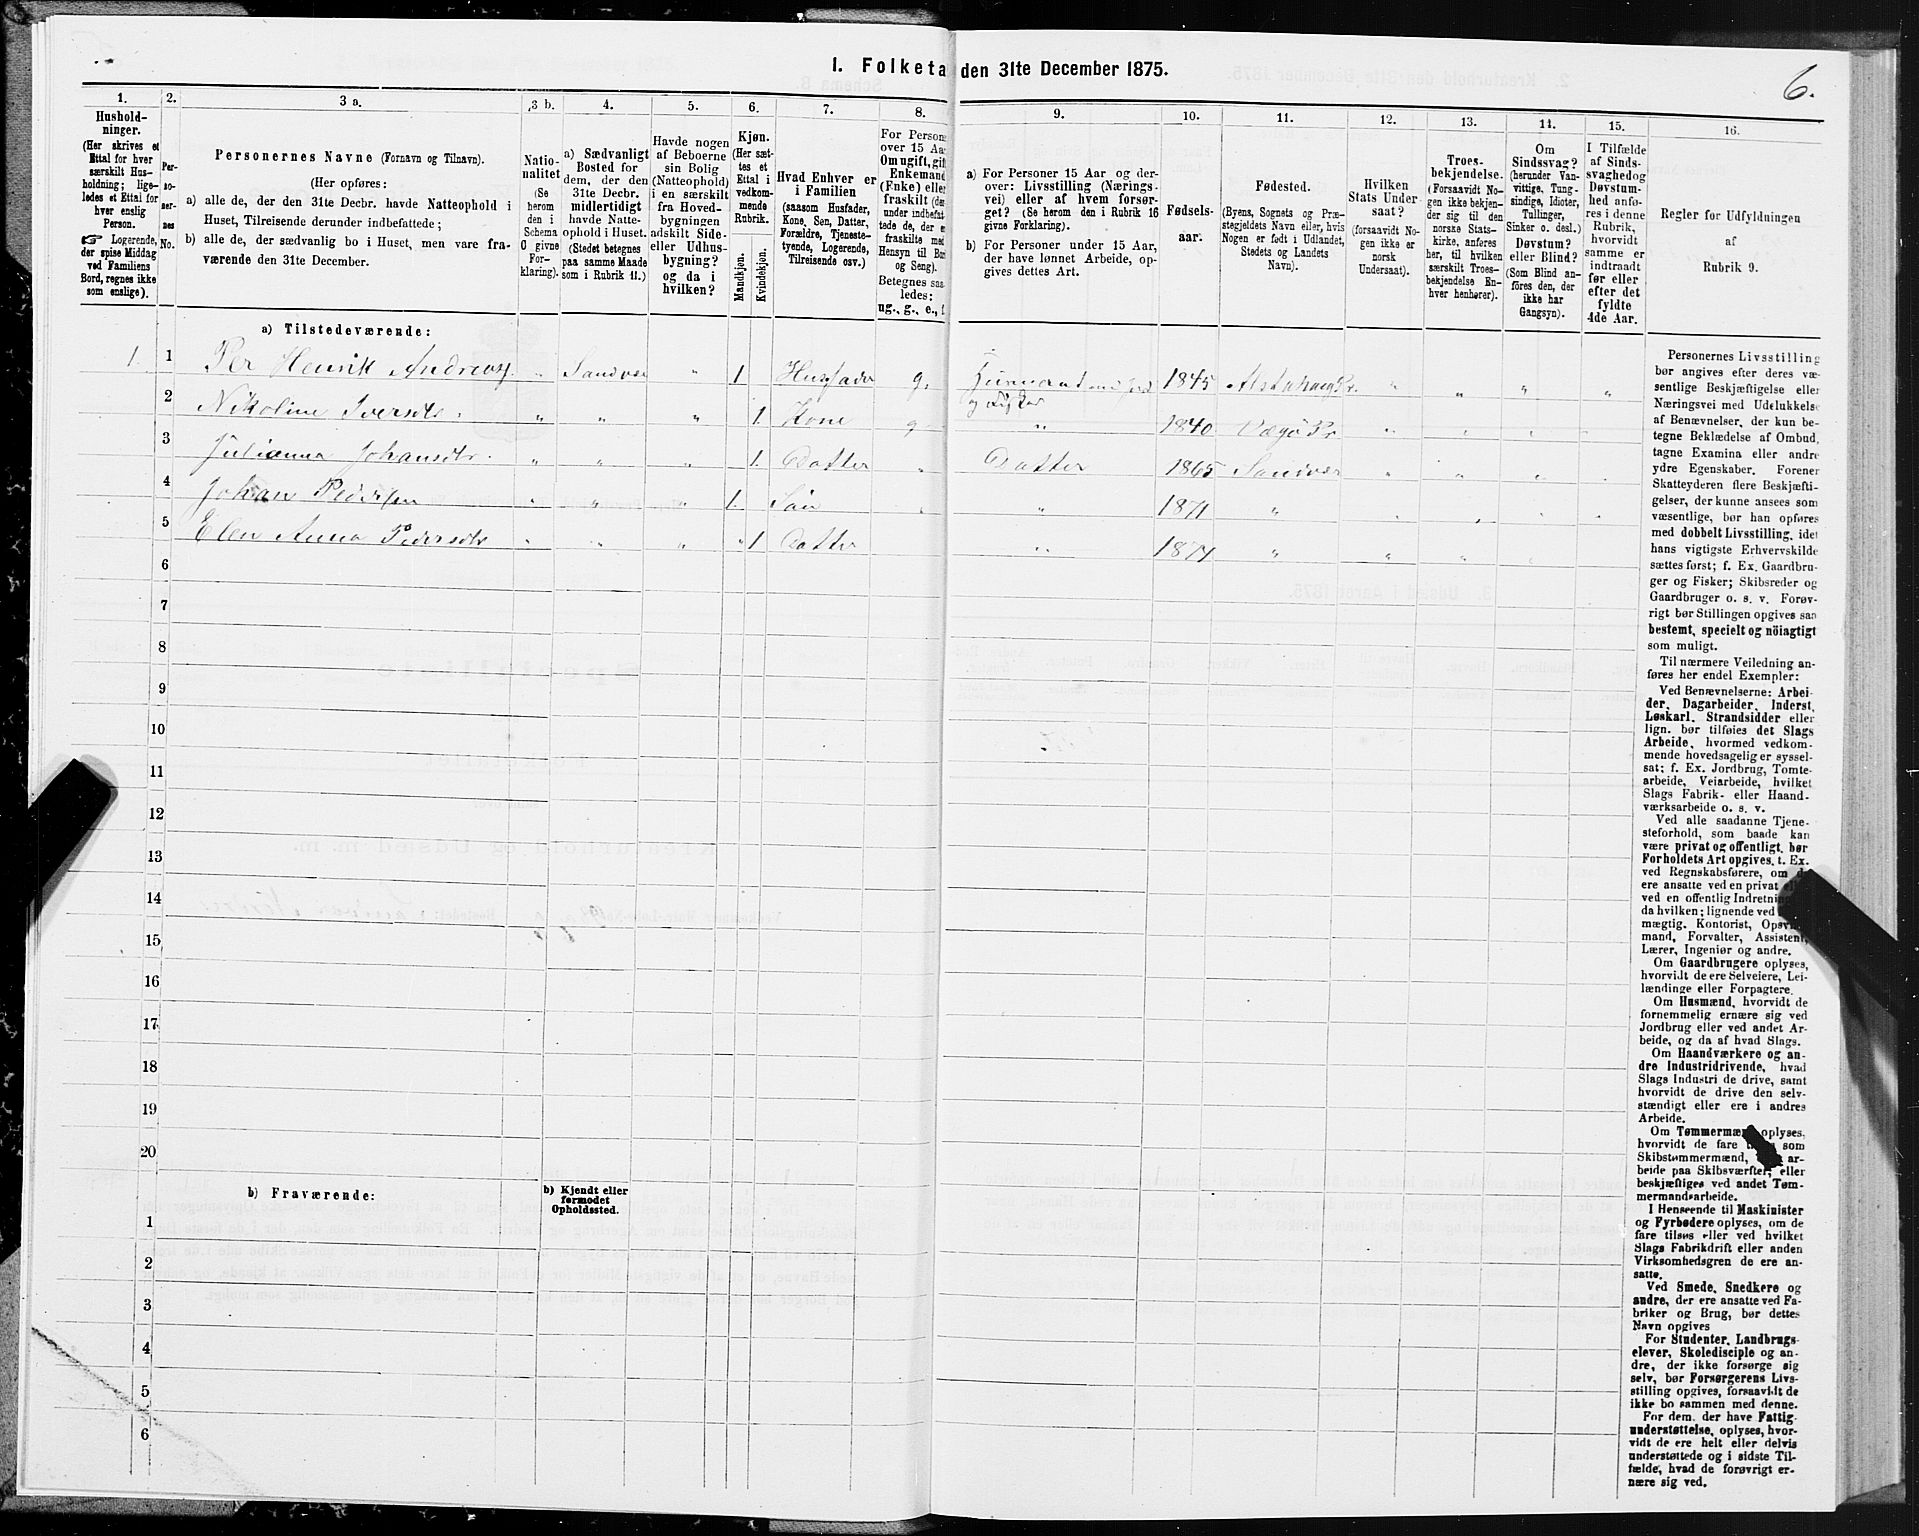 1. Folketa den 31te December 1875.
6.
1. 2. 3 a. 3 b. 4. 5. 6. 7. 8. 9. 10. 11. 12. 13. 14. 15. 16.
Hushold-
ninger.
(Her skrives et
Ettal for hver
særskilt Hus-
holdning; lige-
ledes et Ettal for
hver enslig
Person.
☞ Logerende,
der spise Middag
ved Familiens
Bord, regnes ikke
som enslige).
Per-
so-
ner-
nes
No.
Personernes Navne (Fornavn og Tilnavn).
(Her opføres:
a) alle de, der den 31te Decbr. havde Natteophold i
Huset, Tilreisende derunder indbefattede;
b) alle de, der sædvanlig bo i Huset, men vare fra-
værende den 31te December.
Natio-
nalitet
(Se
herom
den i
Schema
C givne
For-
klaring).
a) Sædvanligt
Bosted for
dem, der den
31te Decbr.
midlertidigt
havde Natte-
ophold i Huset.
(Stedet betegnes
paa samme Maade
som i Rubrik 11.)
Havde nogen
af Beboerne
sin Bolig
(Natteophold)
i en særskilt
fra Hoved-
bygningen
adskilt Side-
eller Udhus-
bygning?
og da i
hvilken?
Kjøn.
(Her sæt-
tes et
Ettal i
vedkom-
mende
Rubrik.
Mandkjøn.
Kvindekjøn.
Hvad Enhver er
i Familien
(saasom Husfader,
Kone, Søn, Datter,
Forældre, Tjeneste-
tyende, Logerende,
Tilreisende osv.)
For Persone
over 15 Aar
Om ugift, gift
Enkemand
(Enke) eller
fraskilt (de
under indbefat-
tede de, der e
fraskilte med
Hensyn til Bo
og Seng).
Betegnes saa-
ledes:
ug., g., e., f.
a) For Personer 15 Aar og der-
over: Livsstilling (Nærings-
vei) eller af hvem forsør-
get? (Se herom den i Rubrik 16
givne Forklaring).
b) For Personer under 15 Aar,
der have lønnet Arbeide, op-
gives dettes Art.
Fødsels-
aar.
Fødested.
(Byens, Sognets og Præ-
stegjeldets Navn eller, hvis
Nogen er født i Udlandet,
Stedets og Landets
Navn).
Hvilken
Stats Under-
saat?
(forsaavidt No-
gen ikke er
norsk
Undersaat).
Troes-
bekjendelse.
(Forsaavidt No-
gen ikke bekjen-
der sig til den
norske Stats-
kirke, anføres
her, til hvilken
særskilt Troes-
bekjendelse En-
hver henhører).
Om
Sindssvag?
(herunder Van-
vittige, Tung-
sindige, Idioter,
Tullinger,
Sinker o. desl.)
Døvstum?
eller Blind?
(Som Blind an-
føres den, der
ikke har
Gangsyn).
I Tilfælde
af Sinds-
svaghedog
Døvstum-
hed anfø-
res i denne
Rubrik,
hvorvidt
samme er
indtraadt
før eller
efter det
fyldte
4de Aar.
Regler for Udfyldningen
af
Rubrik 9.
a) Tilstedeværende:
1. 1 Per Henrik Andreas. „ Sandvær „ 1 Husfader g. 1845 Alstahaug Pr. „ „ „ „
og Fisker
2 Nikoline Iversdtr. „ „ „ 1. Kone g „ 1840 Vægø Pr. „ „ „ „
3 Julianna Johansdtr. „ „ „ 1. Datter „ Datter 1865 Sandvær „ „ „ „
4 Johan Pedersen „ „ „ 1. Søn „ „ 1871 „ „ „ „ „
5 Elen Anna Pedersdtr „ „ „ „ 1 Datter „ 1874 „ „ „ „
6
7
8
9
10
11
12
13
14
15
16
17
18
19
20
b) Fraværende:
b) Kjendt eller
formodet
Opholdssted.
1
2
3
4
5
6
Personernes Livsstilling
bør angives efter deres væ-
sentlige Beskjæftigelse eller
Næringsvei med Udelukkelse
af Benævnelser, der kun be-
tegne Beklædelse af Ombud,
tagne Examina eller andre
ydre Egenskaber. Forener
Skatteyderen flere Beskjæfti-
gelser, der kunne ansees som
væsentlige, bør han opføres
med dobbelt Livsstilling, idet
hans vigtigste Erhvervskilde
sættes først; f. Ex. Gaardbru-
ger og Fisker; Skibsreder og
Gaardbruger o. s. v. Forøv-
rigt bør Stillingen opgives saa
bestemt, specielt og nöiagtigt
som muligt.
Til nærmere Veiledning an-
føres her endel Exempler:
Ved Benævnelserne: Arbei-
der, Dagarbeider, Inderst,
Løskarl, Strandsidder eller
lign. bør tilføies det Slags
Arbeide, hvormed vedkom-
mende hovedsagelig er syssel-
sat; f. Ex. Jordbrug, Tomte-
arbeide, Veiarbeide, hvilket
Slags Fabrik- eller Haand-
værksarbeide o. s. v.
Ved alle saadanne Tjene-
steforhold, som baade kan
være privat og offentligt, bør
Forholdets Art opgives, t. Ex.
ved Regnskabsførere, om d
ere ansatte ved en privat el
ved en offentlig Indretning
da hvilken; lignende ved
mægtig, Kontorist, Opsyns-
mand, Forvalter, Assistent,
Lærer, Ingeniør og andre.
Om Gaardbrugere oplyses,
hvorvidt de ere Selveiere, Lei-
lændinge eller Forpagtere.
Om Husmænd, hvorvidt de
fornemmelig ernære sig ved
Jordbrug eller ved andet Ar-
beide, og da af hvad Slags.
Om Haandværkere og an-
dre Industridrivende, hvad
Slags Industri de drive, samt
hvorvidt de drive den selv-
stændigt eller ere i andres
Arbeide.
Om Tømmermæn oplyses,
hvorvidt de fare som
Skibstømmermænd, ar-
beide paa Skibsværfter, eller
beskjæftiges ved andet Tøm-
mermandsarbeide.
I Henseende til Maskinister
og Fyrbødere oplyses, om de
fare tilsøs eller ved hvilket
Slags Fabrikdrift eller anden
Virksomhedsgren de ere an-
satte.
Ved Smede, Snedkere og
andre, der ere ansatte ved Fa-
briker og Brug, bør dettes
Navn opgives
For Studenter, Landbrugs-
elever, Skoledisciple og an-
dre, der ikke forsørge sig
selv, bør Forsørgerens Livs-
stilling opgives, forsaavidt de
ikke bo sammen med denne.
For dem, der have Fattig-
understøttelse, oplyses, hvor-
vidt de ere helt eller delvis
understøttede og i sidste Til-
fælde, hvad de forøvrigt er-
nære sig ved.